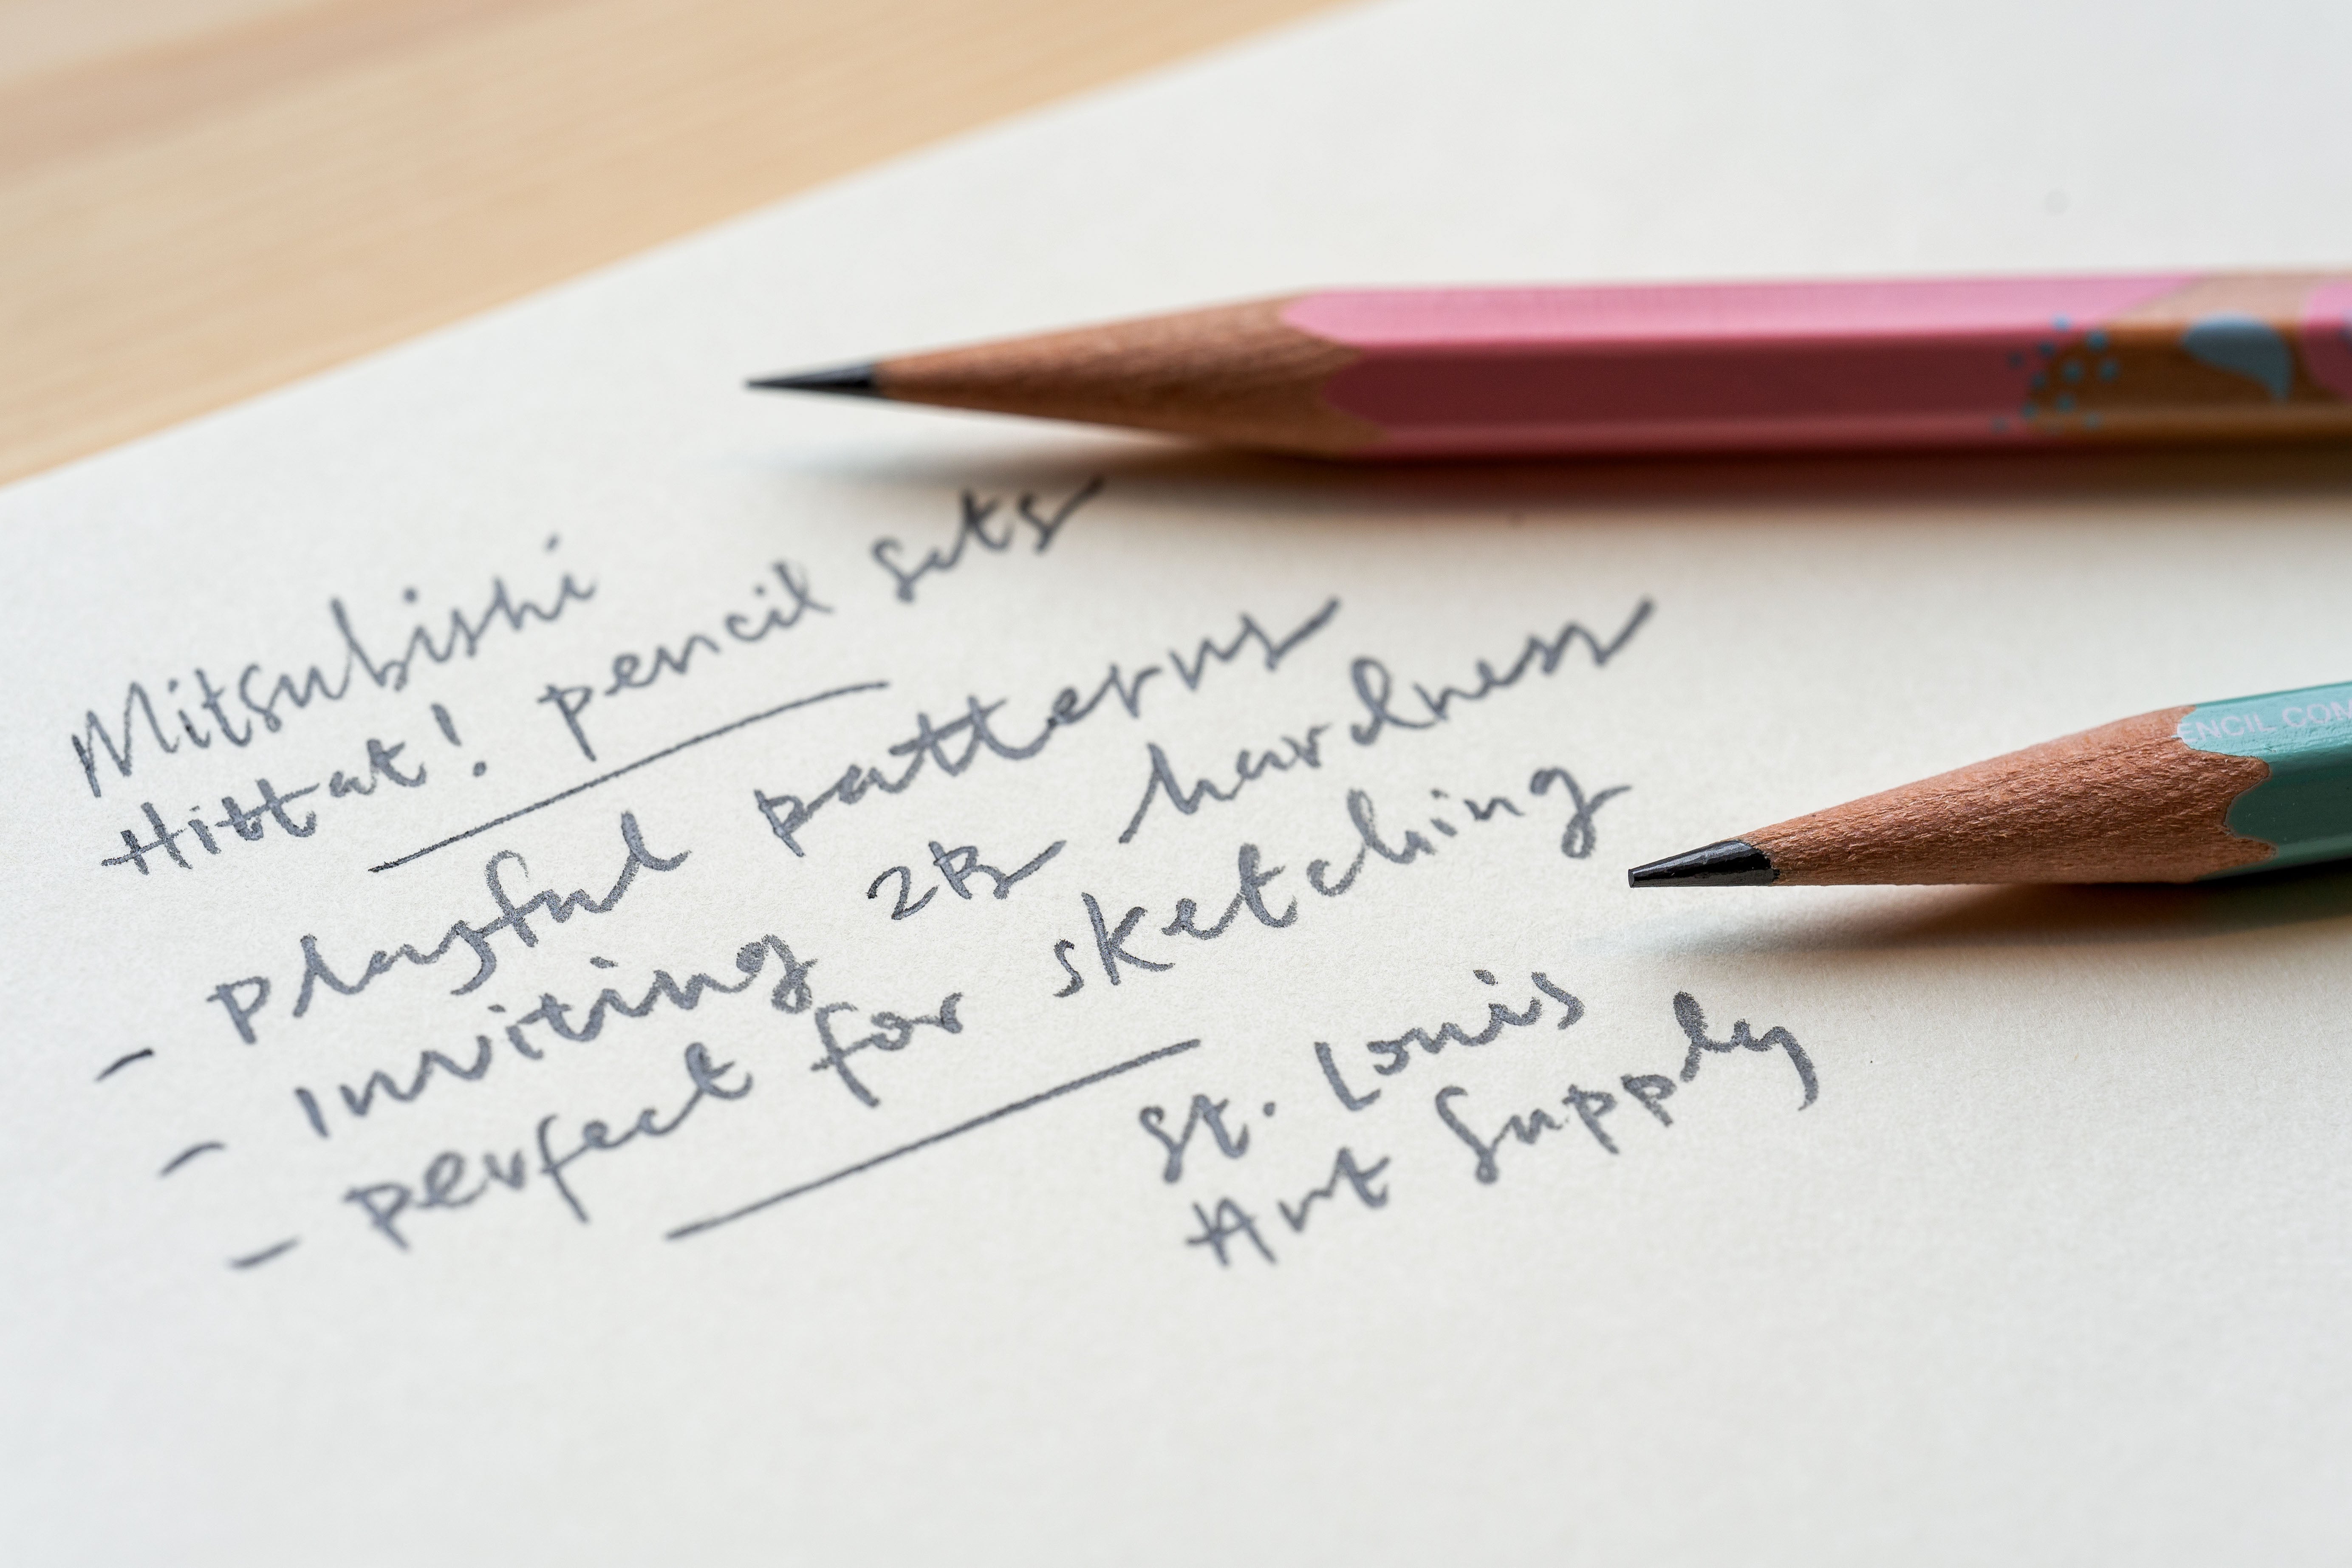 Mitsubishi
Hittat! pencil sets
- playful patterns
- Inviting 2B hardness
- perfect for sketching
St. Louis
Art Supply
ENCIL COM